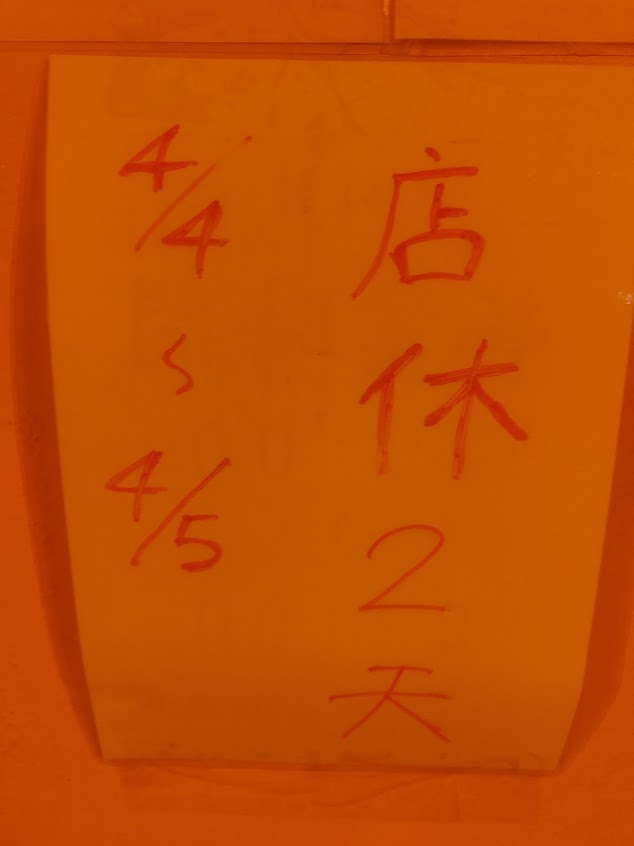 店休2天
4/4
~
4/5